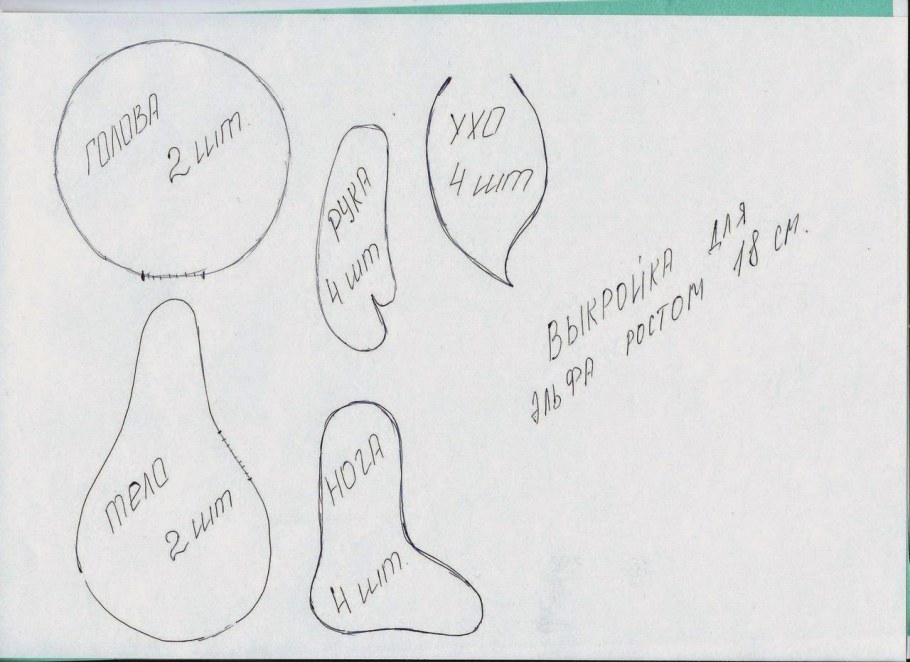 ГОЛОВА
2 шт.
РУКА
4 шт
УХО
4 шт
ВЫКРОЙКА ДЛЯ
ЭЛЬФА РОСТОМ 18 см.
ТЕЛО
2 шт
НОГА
4 шт.